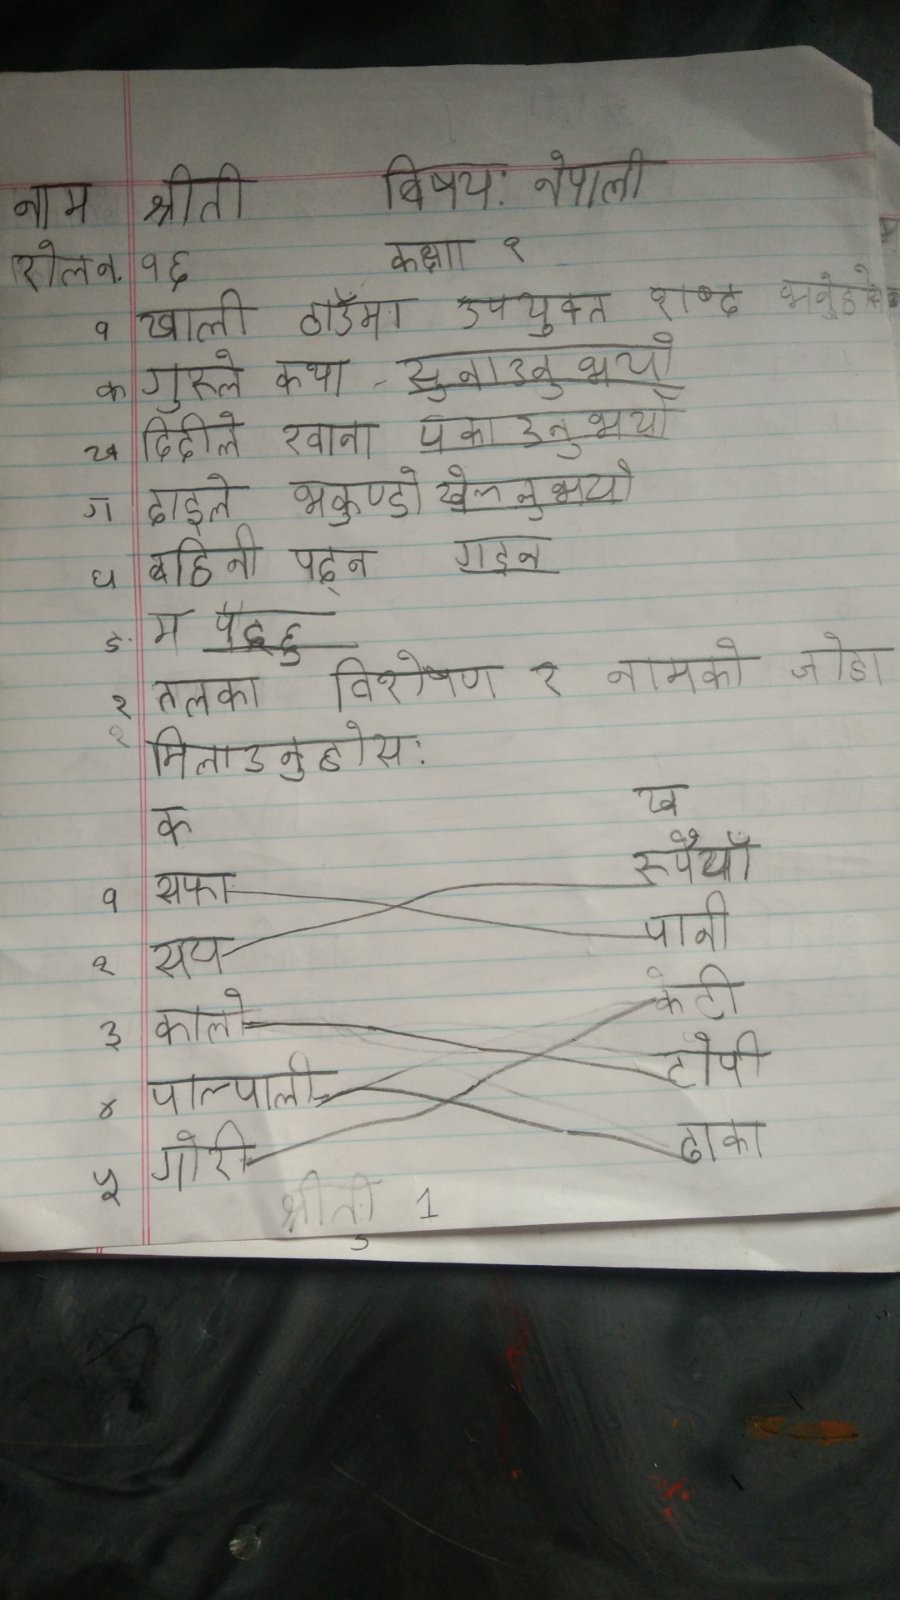 नाम श्रीती बिषय: नेपाली
रोल न. १६ कक्षा १
१ खाली ठाउँमा उपयुक्त शब्द भर्नुहोस
क गुरुले कथा - सुनाउनुभयो
ख दिदीले खाना पकाउनुभयो
ग दाइले भकुण्डो खेल्नुभयो
घ बहिनी पढ्न गइन
ङ म पढ्छु
२ तलका विशेषण र नामको जोडा
२ मिलाउनुहोस:
क ख
१ सफा रूपैयाँ
२ सय पानी
३ कालो केटी
४ पाल्पाली टोपी
५ गोरी ढाका
श्रीतु 1